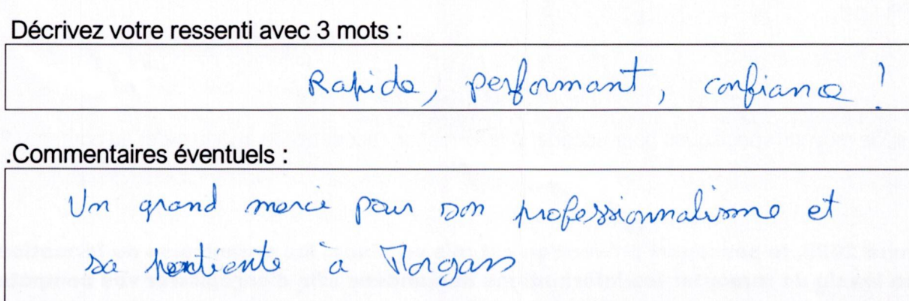 Décrivez votre ressenti avec 3 mots :
Rapide, performant, confiance !
.Commentaires éventuels :
Un grand merci pour son professionnalisme et
sa à Morgan